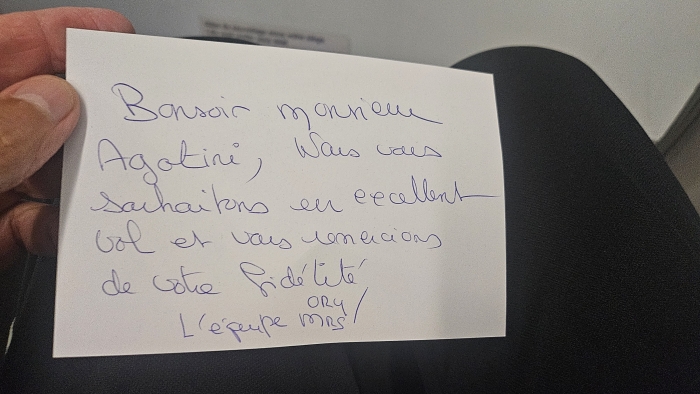 Bonsoir monsieur
Agotini, Nous vous
souhaitons un excellent
vol et vous remercions
de votre fidélité
ORY/
L'équipe MRS